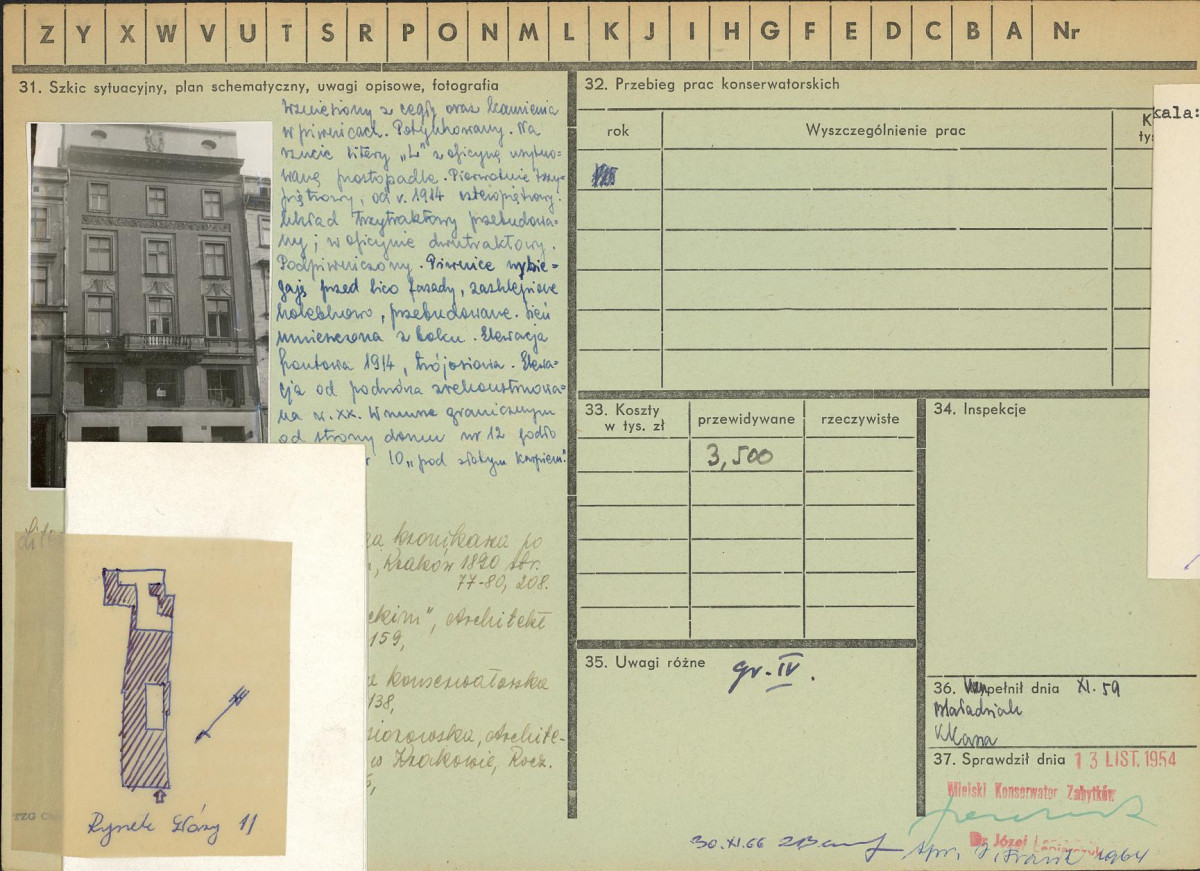 Z Y X W V U T S R P O N M L K J I H G F E D C B A Nr
31. Szkic sytuacyjny, plan schematyczny, uwagi opisowe, fotografia
Wzniesiony z cegły oraz kamienia
w piwnicach. Potynkowany. Na
rzucie litery „L" z oficyną usytuo=
waną prostopadle. Pierwotnie trzy=
piętrowy, od r. 1914 czteropiętrowy.
Układ trzytraktowy przebudowa=
ny; w oficynie dwutraktowy.
Podpiwniczony. Piwnice wybie=
gają przed lico fasady, zasklepione
kolebkowo, przebudowane. Sień
umieszczona z boku. Elewacja
frontowa 1914, trójosiowa. Elewa=
cja od podwórza zrekonstruowa=
na w. XX. W murze granicznym
od strony domu nr 12 godło
10 „pod złotym karpiem"
Lite
kronikarza
Kraków 1890 str.
77-80, 208.
ckim", Architekt
159,
konserwatorska
138,
siorowska, Archite-
w Krakowie, Rocz.
TZG
Rynek Gł
11
32. Przebieg prac konserwatorskich
rok
Wyszczególnienie prac
K
tyś
kala:
33. Koszty
w tys. zł
przewidywane
rzeczywiste
3,500
34. Inspekcje
35. Uwagi różne
gr. IV.
36. Wypełnił dnia XI. 59
37. Sprawdził dnia 13 LIST. 1954
Miejski Konserwator Zabytków
Dr Józef
30. XI. 66
1964